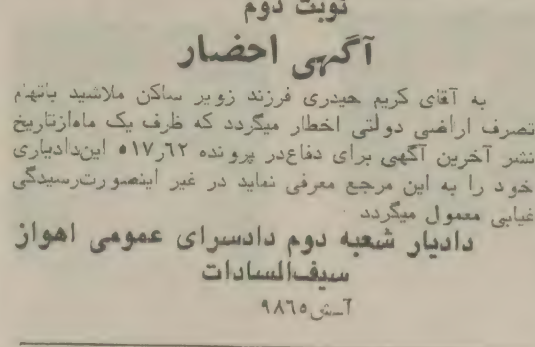 نوبت دوم
آگهی احضار
به آقای کریم حیدری فرزند زویر ساکن ملاشید باتهام
تصرف اراضی دولتی اخطار میگردد که ظرف یک ماه‌ازتاریخ
نشر آخرین آگهی برای دفاع‌در پرونده ۶۲ر۵۱۷ این‌دادیاری
خود را به این مرجع معرفی نماید در غیر اینصورت‌رسیدگی
غیابی معمول میگردد
دادیار شعبه دوم دادسرای عمومی اهواز
سیف‌السادات
آ-ش ۹۸۶۵